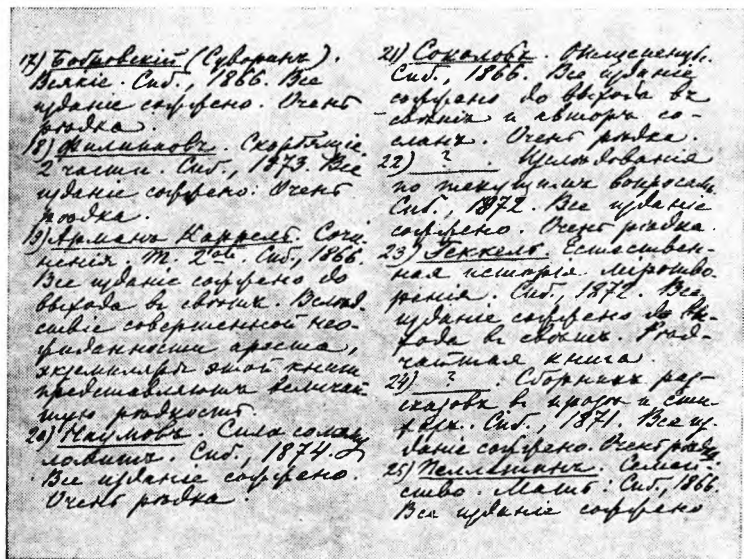 17) Бобровскій (Суворинъ).
Всякіе. Спб., 1866. Все
изданіе сожжено. Очень
рѣдка.
18) Филипповъ. Скорбящіе
2 части. Спб., 1873. Все
изданіе сожжено. Очень
рѣдка.
19) Арманъ Каррель. Сочи-
ненія. Т. 2ой. Спб., 1866.
Все изданіе сожжено до
выхода въ свѣтъ. Вслѣд-
ствіе совершенной нео-
жиданности ареста,
экземпляры этой книги
представляютъ величай-
шую рѣдкость.
20) Наумовъ. Сила солому
ломитъ. Спб., 1874.
Все изданіе сожжено.
Очень рѣдка.
21) Соколовъ. Отщепенцы.
Спб., 1866. Все изданіе
сожжено до выхода въ
свѣтъ и авторъ со-
сланъ. Очень рѣдка.
22) ? . Изслѣдованія
по текущимъ вопросамъ.
Спб., 1872. Все изданіе
сожжено. Очень рѣдка.
23) Геккель. Естествен-
ная исторія міротво-
ренія. Спб., 1872. Все
изданіе сожжено до вы-
хода въ свѣтъ. Рѣд-
чайшая книга.
24) ? . Сборникъ раз-
сказовъ въ прозѣ и сти-
хахъ. Спб., 1871. Все из-
даніе сожжено. Очень рѣдка
25) Пеллетанъ. Семей-
ство. Мать. Спб., 1866.
Все изданіе сожжено